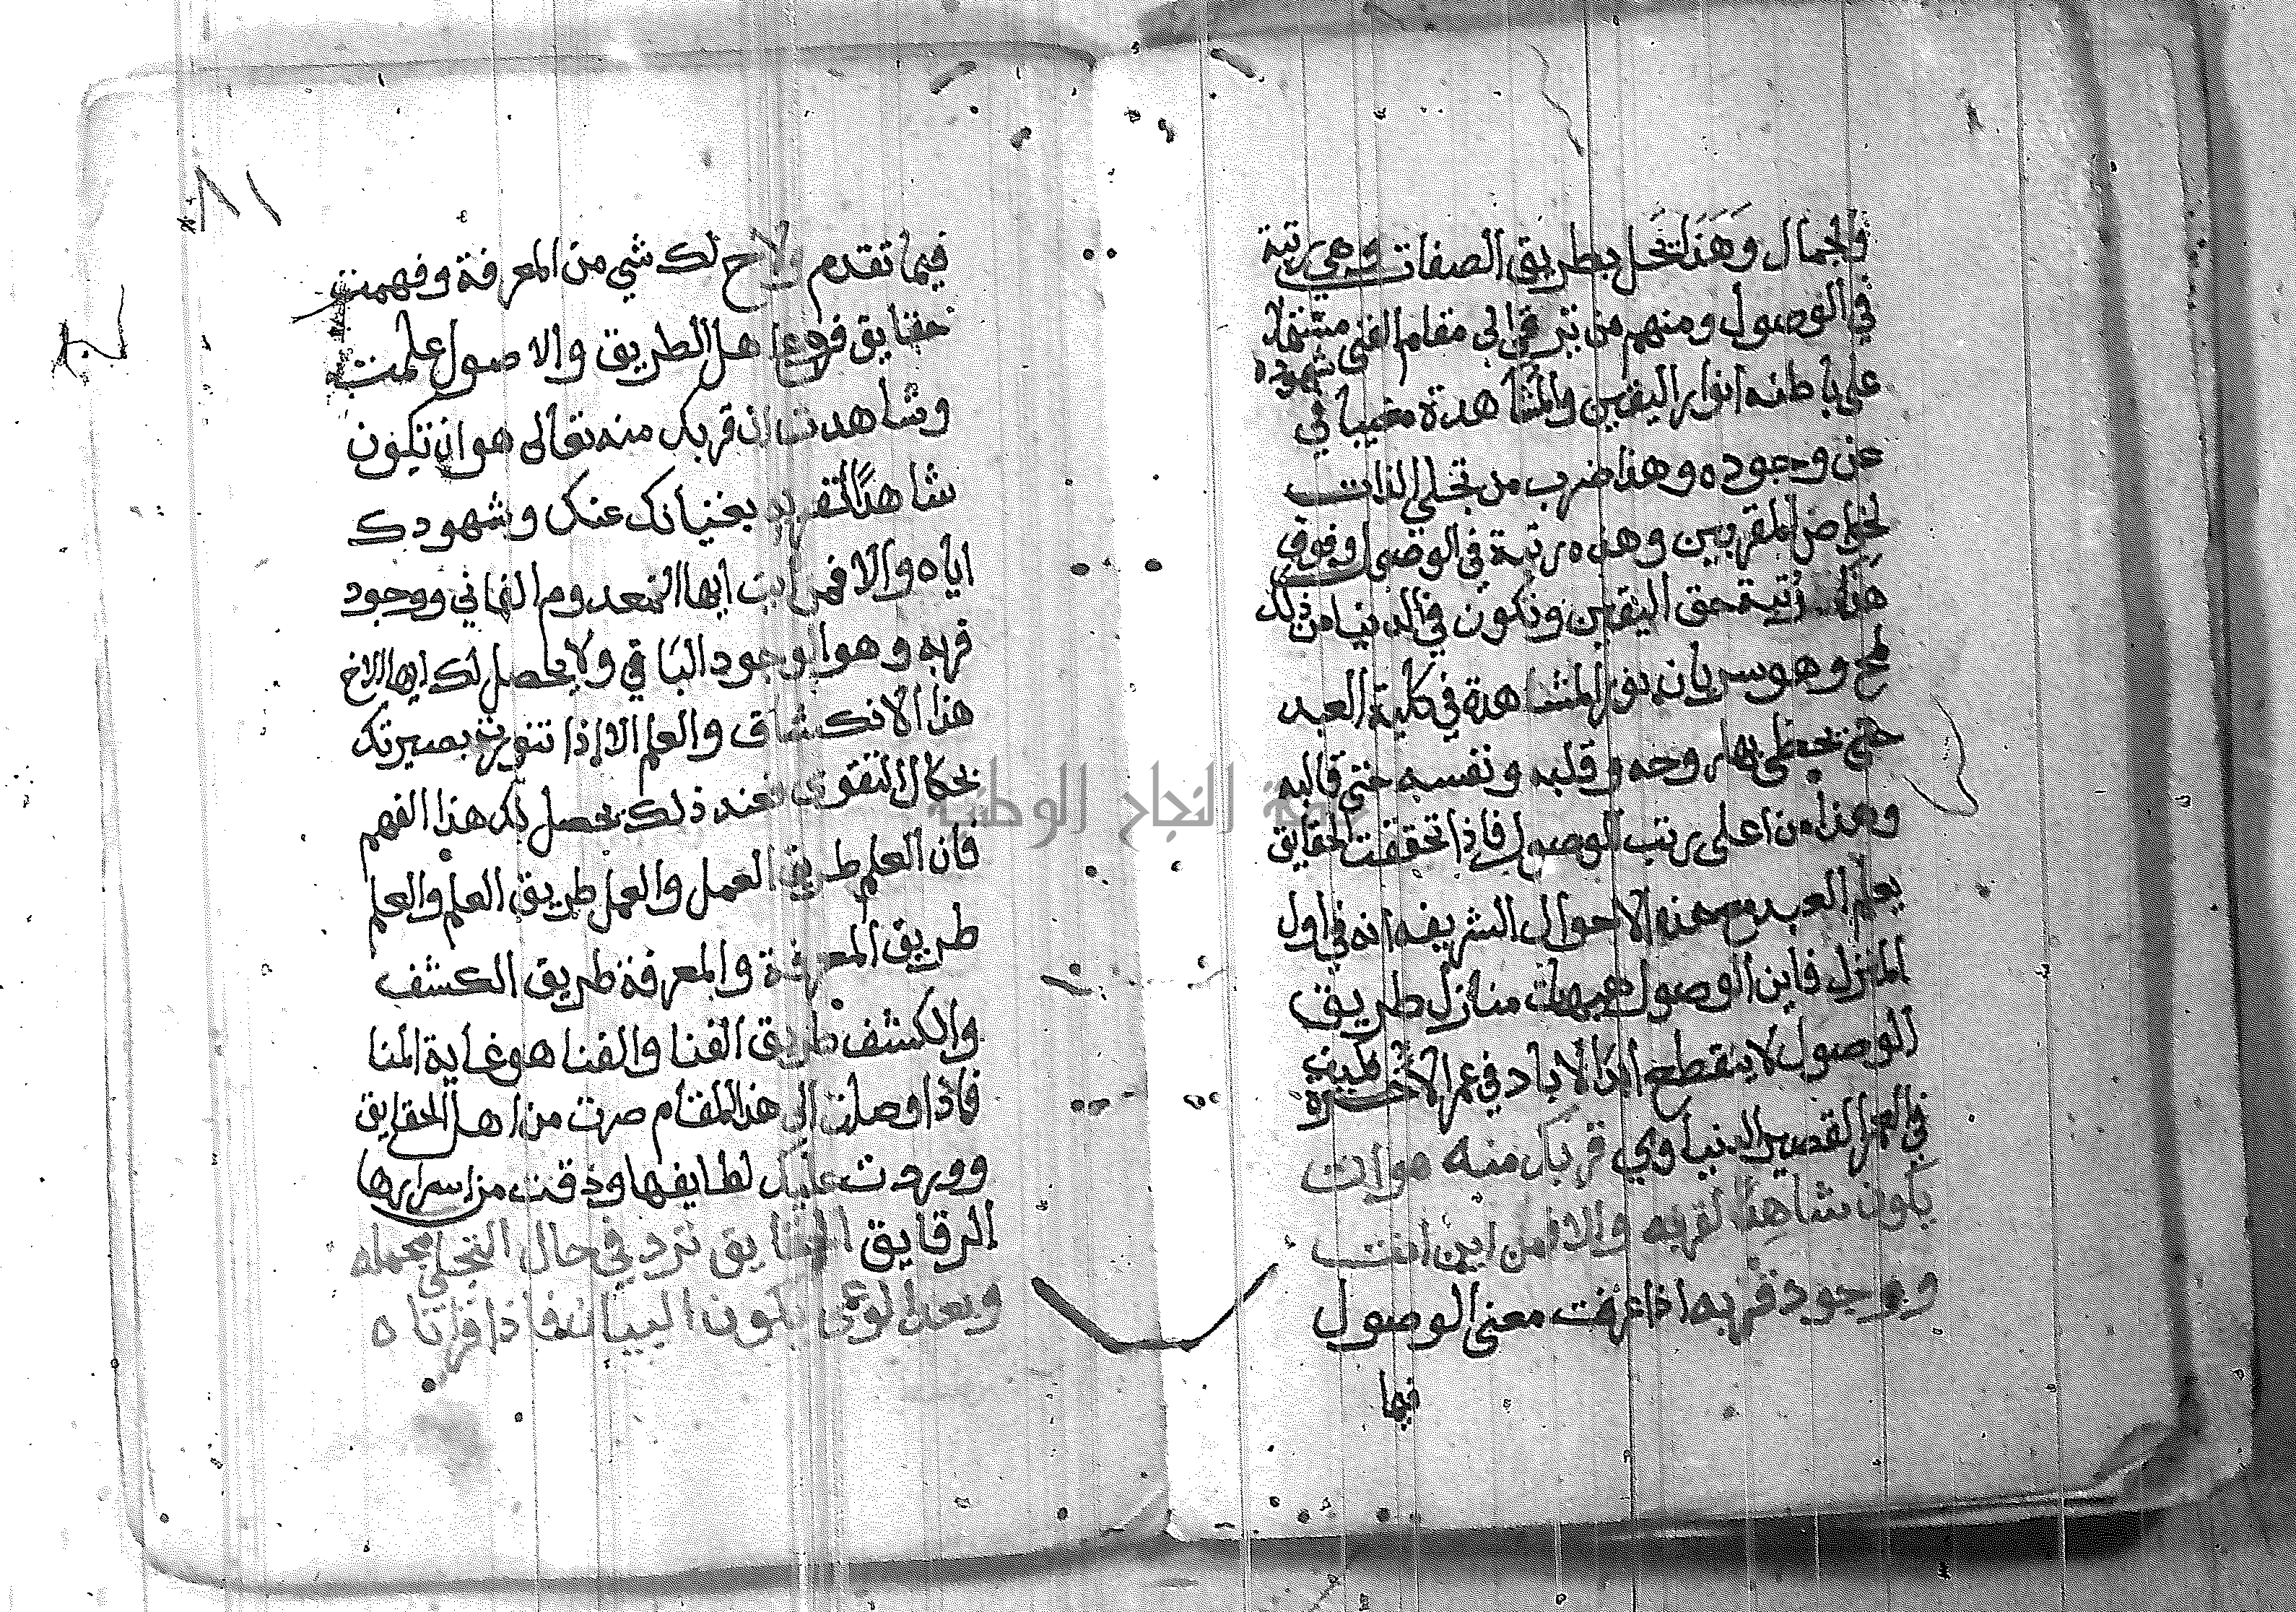 والجمال وهذا تجل بطريق الصفات وهي رتبة
في الوصول ومنهم من ترقى الى مقام الفنى مشتملا
على باطنه انوار اليقين والمشاهدة مغيبا في شهوده
عن وجوده وهذا ضرب من تجلي الذات
لخواص المقربين وهذه رتبة في الوصول وفوق
هذا رتبة حق اليقين وتكون في الدنيا من ذلك
لمح وهو سريان نور المشاهدة في كلية العبد
حتى يحظى بها روحه وقلبه ونفسه حتى قالبه
وهذا من اعلى رتب الوصول فاذا تحققت الحقايق
يعلم العبد مع هذه الاحوال الشريفه انه في اول
المنزل فاين الوصول هيهات منازل طريق
الوصول لا ينقطع ابدا لاباد في عمر الاخرة فكيف
في العمر القصير الدنياوي قربك منه هو ان
يكون شاهدا لقربه والا فمن اين انت
ووجود قربه اذا عرفت معنى الوصول
فيها
٨١
فيما تقدم ولاح لك شي من المعرفة وفهمت
حقايق فروع اهل الطريق والاصول علمت
وشاهدت ان قربك منه تعالى هو ان تكون
شاهدا لقربه بغنيانك عنك وشهودك
اياه والا فمن اين ايها المعدوم الفاني ووجود
قربه وهو الوجود الباقي ولا يحصل لك ايها الاخ
هذا الانكشاف والعلم الا اذا تنورت بصيرتك
بكمال التقوى فعند ذلك يحصل لك هذا الفهم
فان العلم طريق العمل والعمل طريق العلم والعلم
طريق المعرفة والمعرفة طريق الكشف
والكشف طريق الفنا والفنا هو غاية المنا
فاذا وصلت الى هذا المقام صرت من اهل الحقايق
ووردت عليك لطايفها وذقت من اسرارها
الرقايق الحقايق ترد في حال التجلي مجمله
وبعد الوعى يكون البيان فاذا قراناه
جامعة النجاح الوطنية